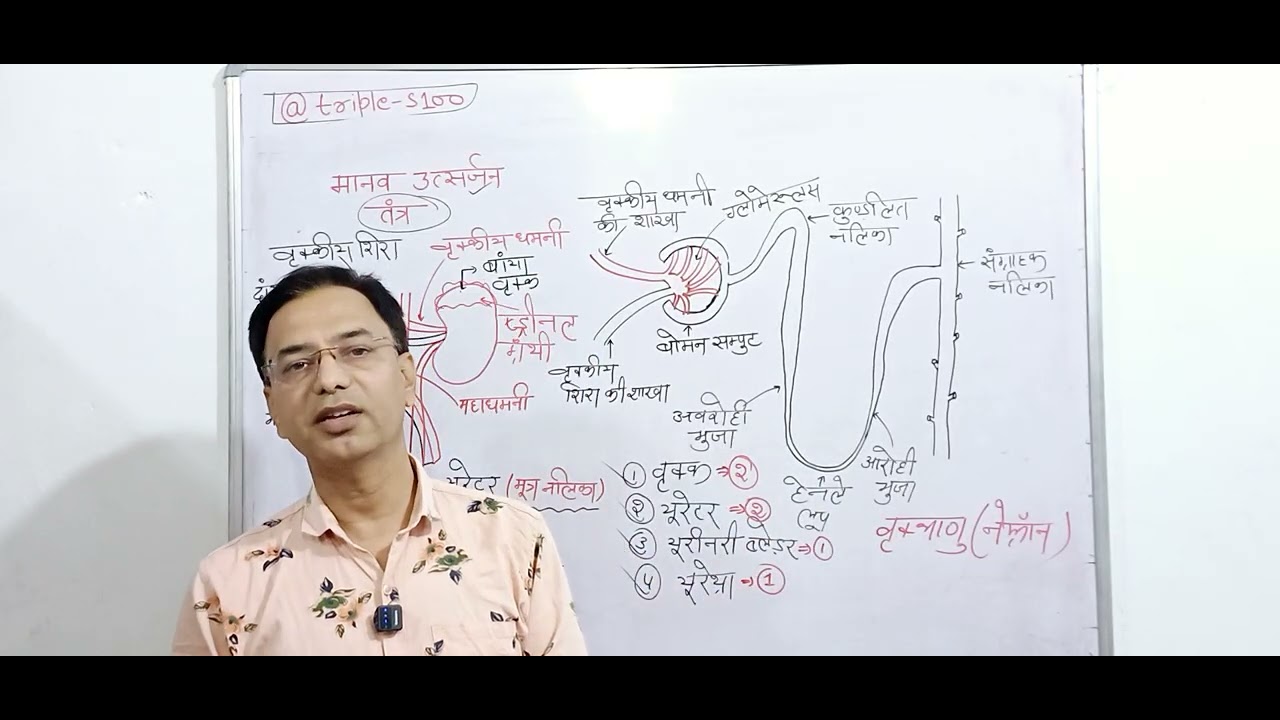 @triple-S100
मानव उत्सर्जन
तंत्र
वृक्कीय शिरा
वृक्कीय धमनी
बांया
वृक्क
ग्रंथी
महाधमनी
यूरेटर (मूत्र नलिका)
वृक्कीय धमनी
की शाखा
ग्लोमेरूलस
कुण्डलित
नलिका
संग्राहक
नलिका
बोमन सम्पुट
वृक्कीय
शिरा की शाखा
अवरोही
भुजा
आरोही
भुजा
हेनले
लूप
① वृक्क ⇒ ②
② यूरेटर ⇒ ②
③ यूरीनरी ब्लेडर ⇒ ①
④ यूरेथ्रा ⇒ ①
वृक्काणु (नेफ्रॉन)